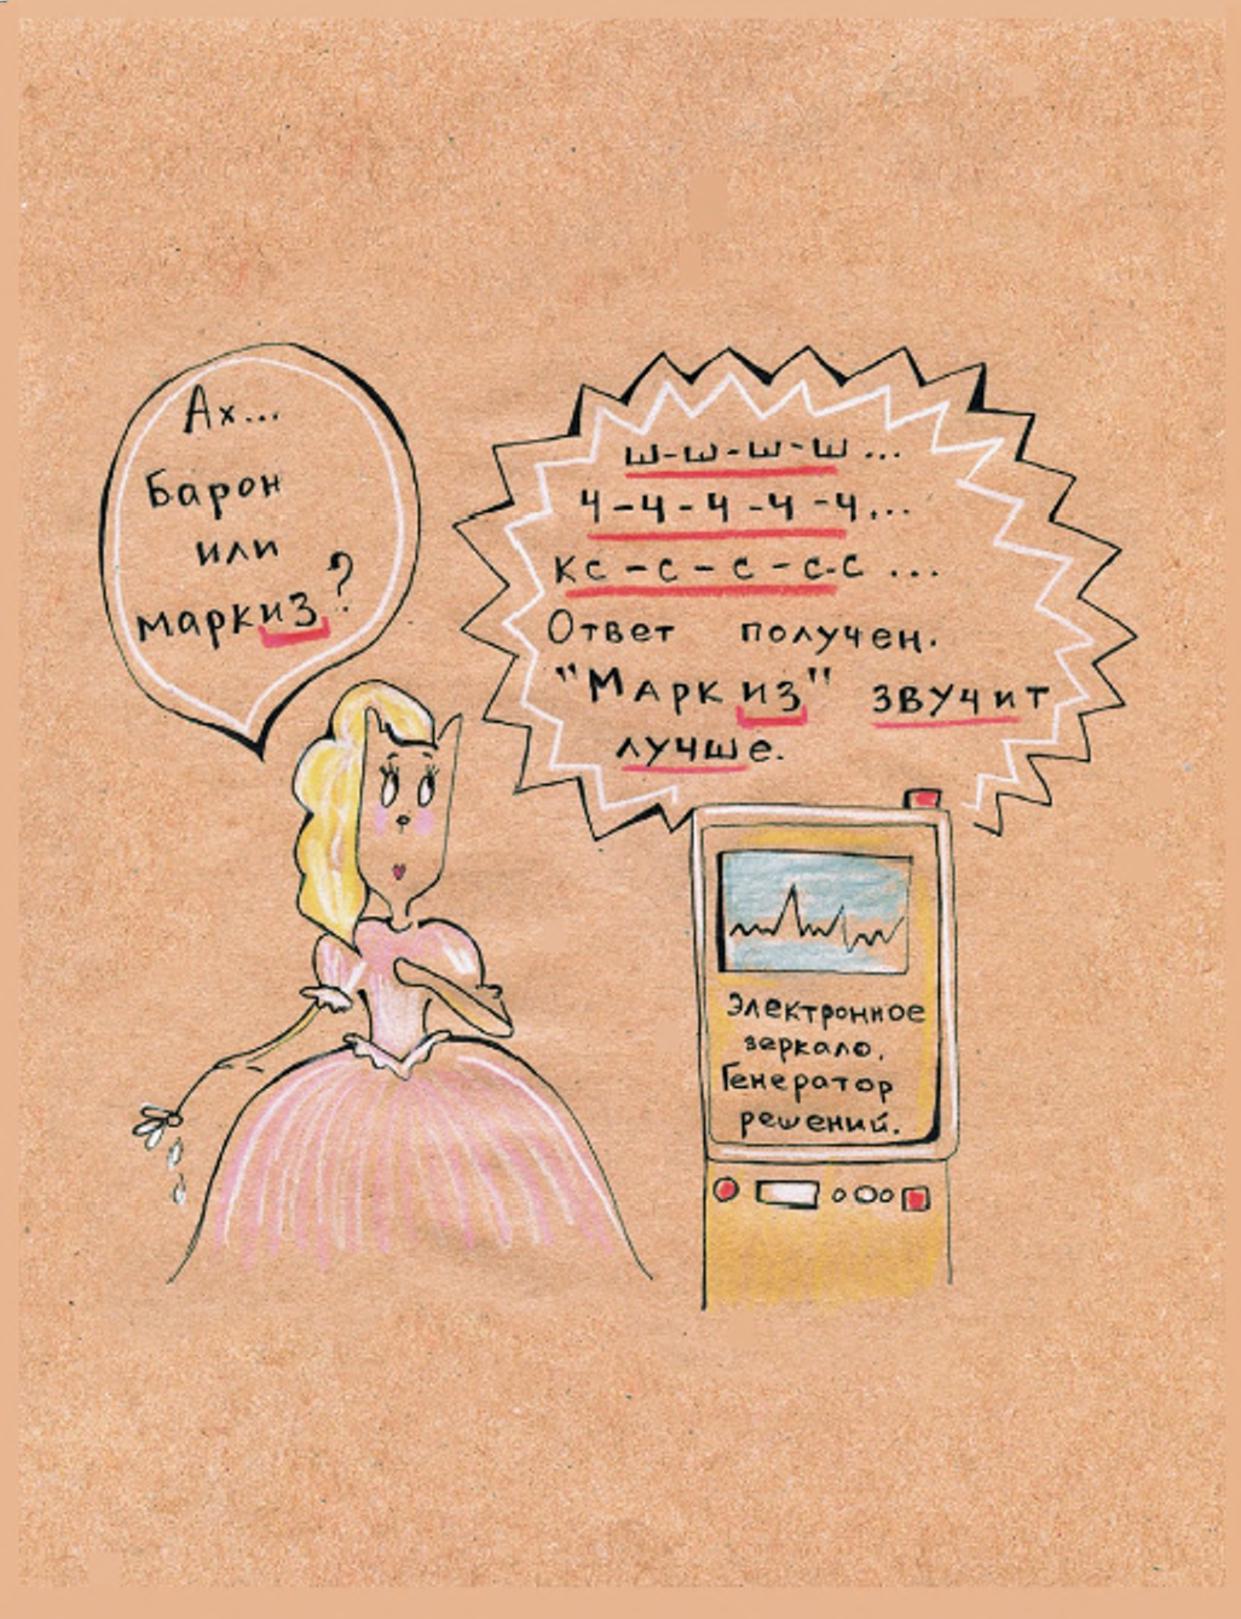 Ах...
Барон
или
маркиз?
ш-ш-ш-ш...
ч-ч-ч-ч-ч...
кс-с-с-с-с...
Ответ получен.
"Маркиз" звучит
лучше.
Электронное
зеркало.
Генератор
решений.